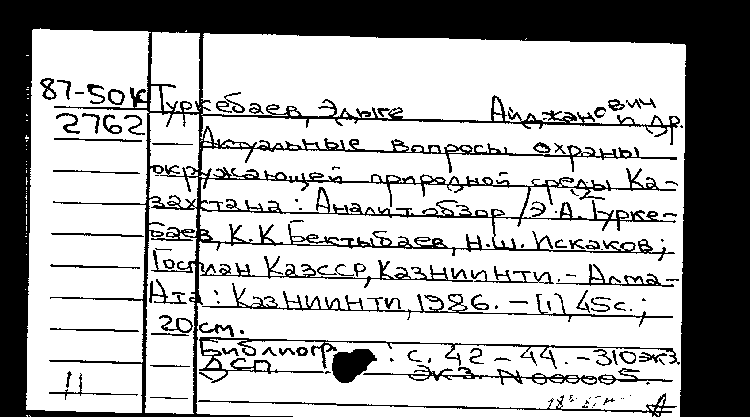 87-50К Туркебаев, Эдыге Айджанович и др.
2762
Актуальные вопросы охраны
окружающей природной среды Ка-
захстана: Аналит. обзор / Э.А. Турке-
баев, К.К. Бектыбаев, Н.Ш. Искаков;
Госплан КазССР, КазНИИНТИ. - Алма-
Ата: КазНИИНТИ, 1986. - [1], 45с.;
20 см.
Библиогр.: с. 42-44. - 310 экз.
ДСП. Экз. N 00005.
11